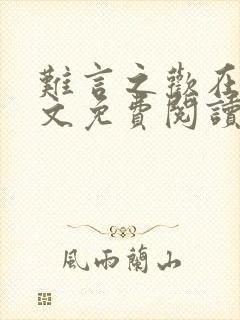 難言之歡在
文免費閱讀
風雨蘭山